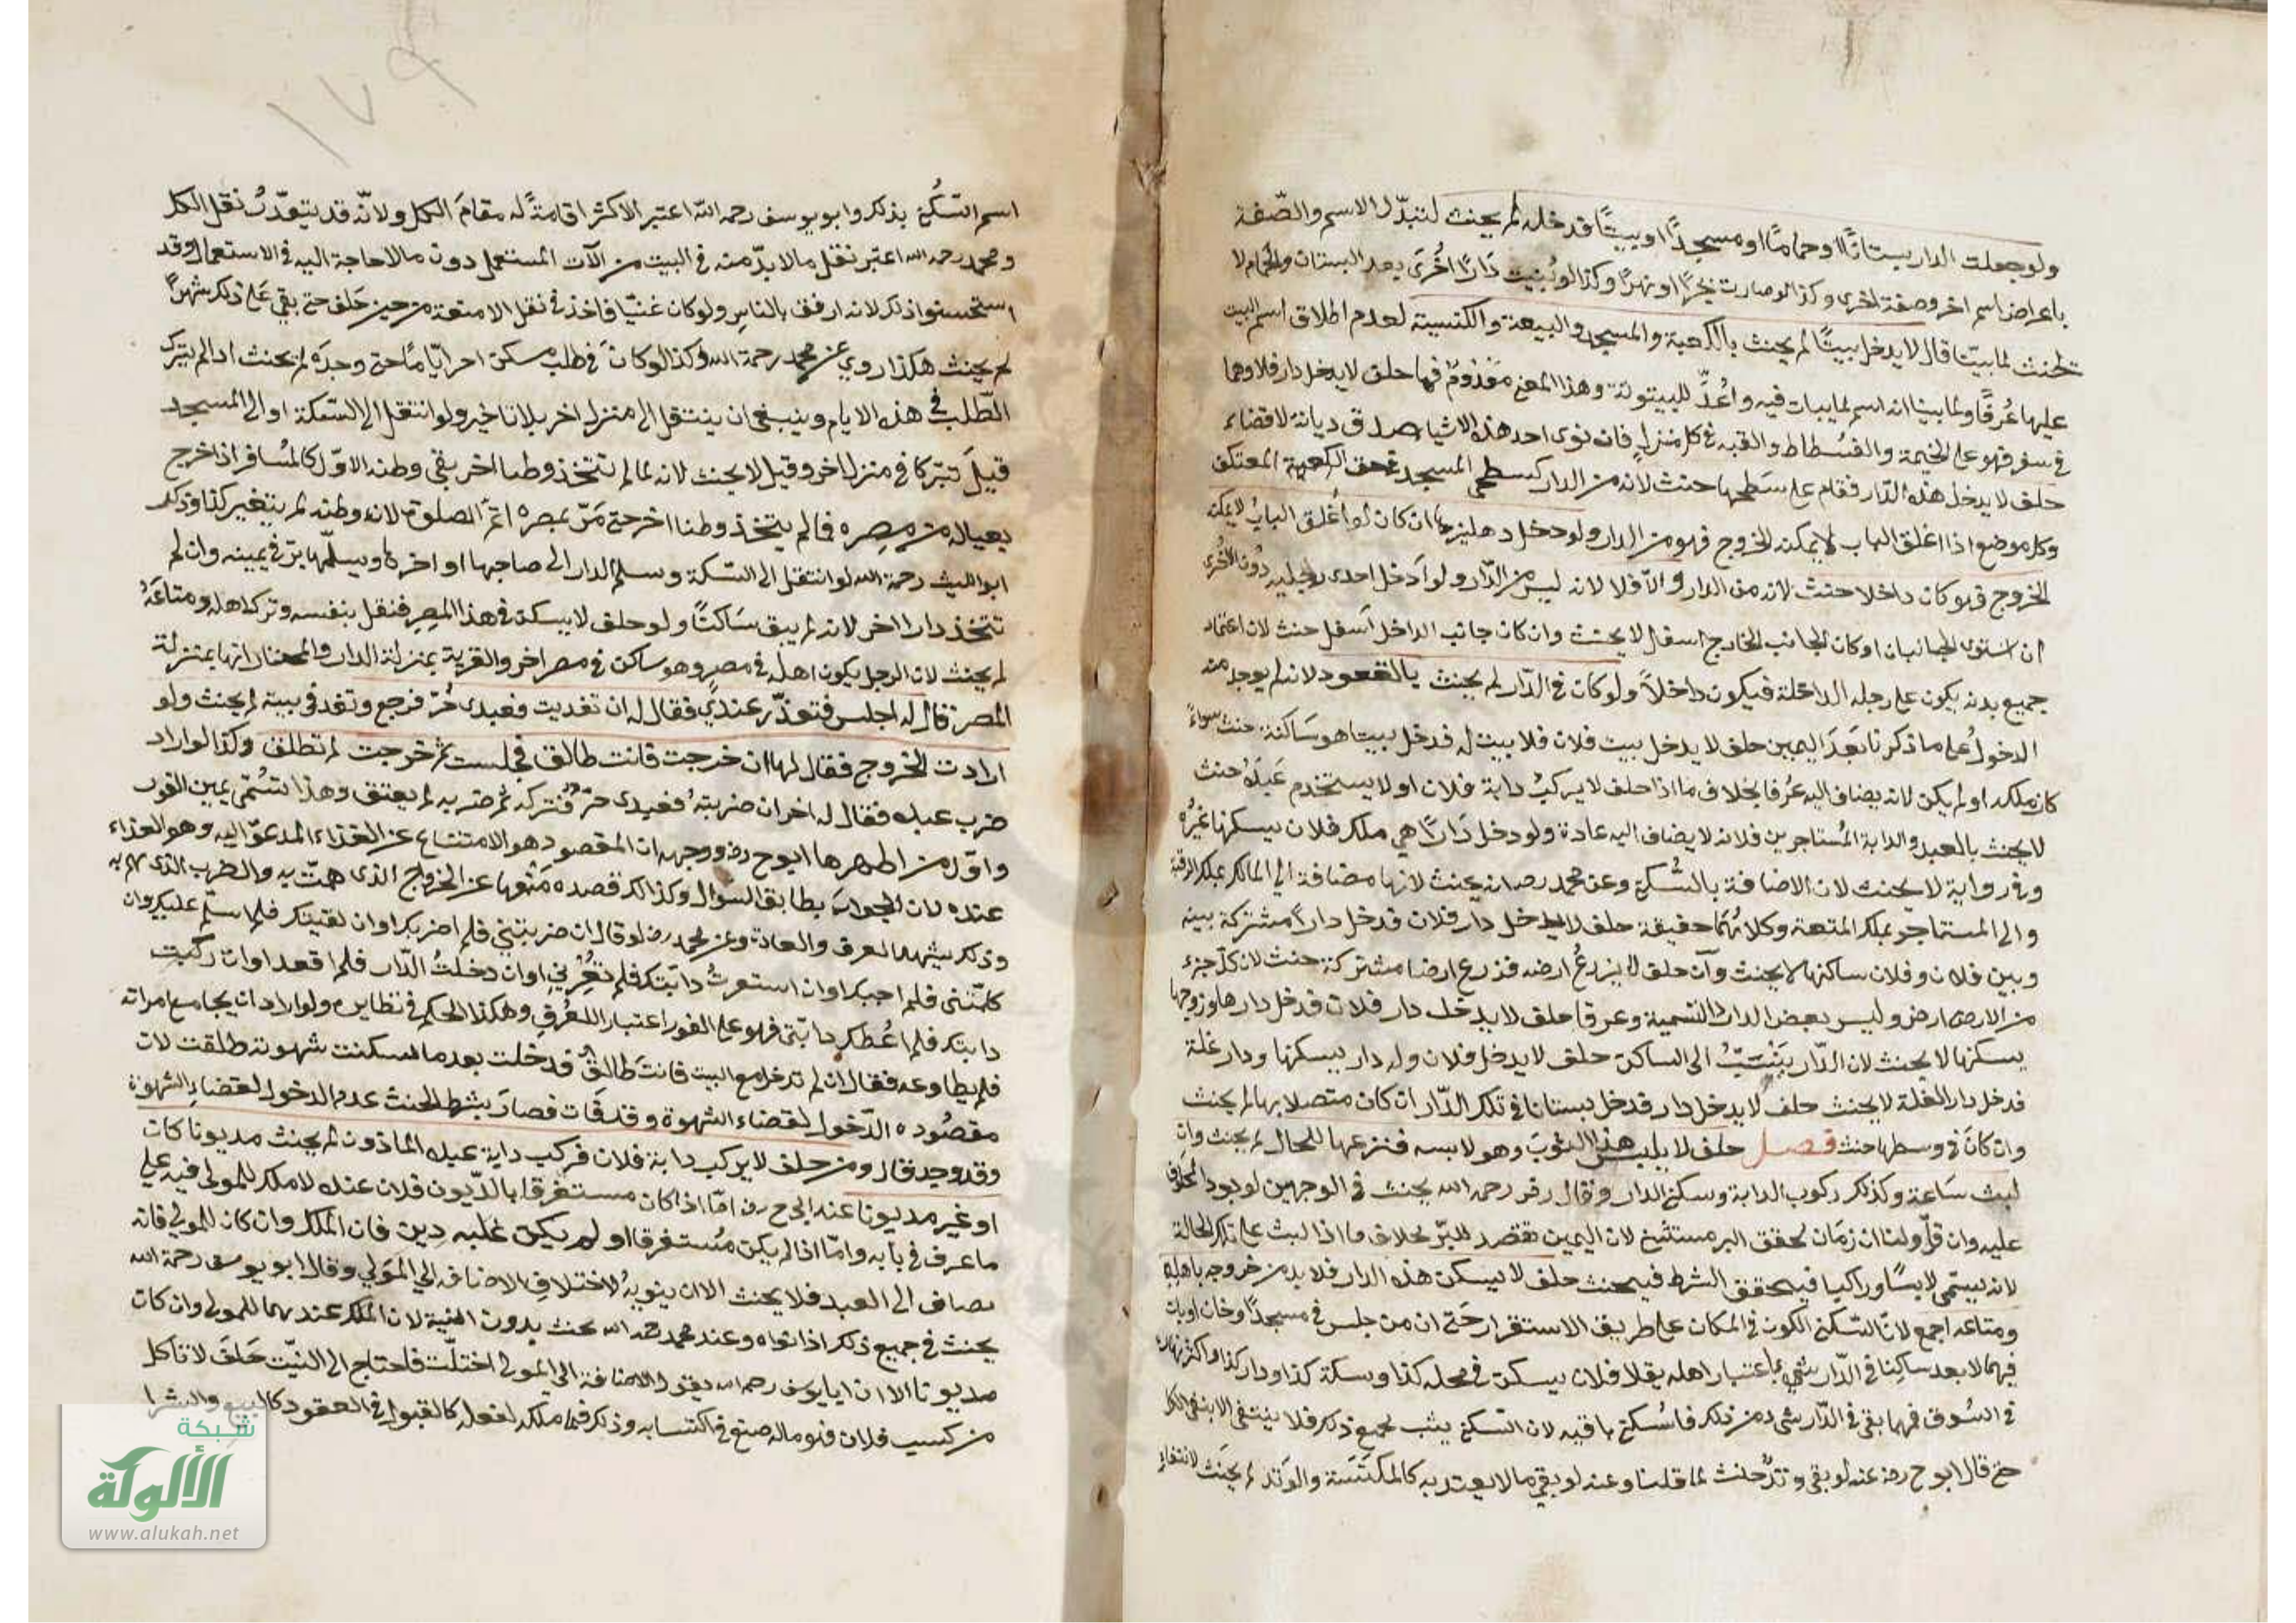 ولو جعلت الدار بستانا او حماما او مسجدا او بيتا فدخله لم يحنث لتبدل الاسم والصفة
باعراض اسم اخر وصفة اخرى وكذا لو صارت بحرا او نهرا وكذا لو بنيت دارا اخرى بعد البستان والحمام لا
يحنث لما بينا قال لا يدخل بيتا لم يحنث بالكعبة والمسجد والبيعة والكنسية لعدم اطلاق اسم البيت
عليها عرفا ولما بينا انه اسم لما يبات فيه واعد للبيتوتة وهذا المعنى معدوم فيها حلف لا يدخل دار فلان وهما
في سفر فهو على الخيمة والفسطاط والقبة في كل منزل فان نوى احد هذه الاشياء صدق ديانة لا قضاء
حلف لا يدخل هذه الدار فقام على سطحها حنث لانه من الدار كسطح المسجد في حق المعتكف
وكل موضع اذا اغلق الباب لا يمكنه الخروج فهو من الدار ولو دخل دهليزها ان كان لو اغلق الباب لا يمكنه
الخروج فهو كان داخلا حنث لانه من الدار والا فلا لانه ليس من الدار ولو ادخل احدى رجليه دون الاخرى
ان استوى الجانبان او كان الجانب الخارج اسفل لا يحنث وان كان جانب الداخل اسفل حنث لان اعتماد
جميع بدنه يكون على رجله الداخلة فيكون داخلا ولو كان في الدار لم يحنث بالقعود لانه لم يوجد منه
الدخول على ما ذكرنا بعد اليمين حلف لا يدخل بيت فلان فلا بيت له فدخل بيتا هو ساكنه حنث سواء
كان ملكه او لم يكن لانه يضاف اليه عرفا بخلاف ما اذا حلف لا يركب دابة فلان او لا يستخدم عبده حنث
لا يحنث بالعبد والدابة المستاجرين فلانه لا يضاف اليه عادة ولو دخل دارا هي ملك فلان يسكنها غيره
وفي رواية لا يحنث لان الاضافة بالسكنى وعن محمد رح انه يحنث لانها مضافة الى المالك بملك الرقبة
والى المستاجر بملك المتعة وكلاهما حقيقة حلف لا يدخل دار فلان فدخل دارا مشتركة بينه
وبين فلان وفلان ساكنها لا يحنث وان حلف لا يزرع ارضه فزرع ارضا مشتركة حنث لان كل جزء
من الارض ارض وليس بعض الدار دارا تسمية وعرفا حلف لا يدخل دار فلانة فدخل دارها وزوجها
يسكنها لا يحنث لان الدار ينسب الى الساكن حلف لا يدخل فلان وله دار يسكنها ودار غلة
فدخل دار الغلة لا يحنث حلف لا يدخل دار فدخل بستانا في تلك الدار ان كان متصلا بها لم يحنث
وان كان في وسطها حنث فصل حلف لا يلبس هذا الثوب وهو لابسه فنزعها للحال لم يحنث وان
لبث ساعة وكذلك ركوب الدابة وسكنى الدار وقال زفر رحمه الله يحنث في الوجهين لوجود المحلوف
عليه وان قل ولنا ان زمان تحقق البر مستثنى لان اليمين تقصد للبر بخلاف ما اذا لبث على تلك الحالة
لانه يسمى لابسا وراكبا فيتحقق الشرط فيحنث حلف لا يسكن هذه الدار فلا بد من خروجه باهله
ومتاعه اجمع لان السكنى الكون في المكان على طريق الاستقرار حتى ان من جلس في مسجد او خان او بات
فيهما لا يعد ساكنا في الدار باعتبار اهله يقال فلان يسكن في محلة كذا وسكة كذا ودار كذا واكثر نهاره
في السوق فمهما بقي في الدار شيء من ذلك فالسكنى باقية لان السكنى يثبت بجميع ذلك فلا ينتفي الا بنفي الكل
حتى قال ابو ح رضي عنه لو بقي وتد حنث لما قلنا وعنه لو بقي ما لا يعتد به كالمكنسة والوتد لم يحنث لانتفاء
اسم السكنى بذلك وابو يوسف رحمه الله اعتبر الاكثر اقامة له مقام الكل ولانه قد يتعذر نقل الكل
ومحمد رحمه الله اعتبر نقل ما لا بد منه في البيت من الآت المستعمل دون ما لا حاجة اليه في الاستعمال وقد
استحسنوا ذلك لانه ارفق بالناس ولو كان غنيا فاخذ في نقل الامتعة من حين حلف حتى بقي على ذلك شهرا
لم يحنث هكذا روي عن محمد رحمة الله وكذا لو كان في طلب مسكن اخر اياما حتى وجده لم يحنث اذا لم يترك
الطلب في هذه الايام وينبغي ان ينتقل الى منزل اخر بلا تاخير ولو انتقل الى السكة او الى المسجد
قيل تبركا في منزل اخر وقيل لا يحنث لانه لما لم تتخذ وطنا اخر بقي وطنه الاول كالمسافر اذا خرج
بعياله من مصره فما لم يتخذ وطنا اخر حتى مر بمصره اتم الصلوة لانه وطنه لم يتغير كذا وذكر
ابو الليث رحمة الله لو انتقل الى السكة وسلم الدار الى صاحبها او اخرها ويسلمها بر في يمينه وان لم
تتخذ دارا اخر لانه لم يبق ساكنا ولو حلف لا يسكن في هذا المصر فنقل بنفسه وترك اهله ومتاعه
لم يحنث لان الرجل يكون اهله في مصر وهو ساكن في مصر اخر والقرية بمنزلة الدار والمختار انها بمنزلة
المصر قال له اجلس فتغد عندي فقال له ان تغديت فعبدى حر فرجع وتغد في بيته لم يحنث ولو
ارادت الخروج فقال لها ان خرجت فانت طالق فجلست ثم خرجت لم تطلق وكذا لو اراد
ضرب عبده فقال له اخر ان ضربته فعبدى حر فتركه ثم ضربه لم يعتق وهذا تسمى يمين الفور
واول من اظهرها ابو ح رض ووجهه ان المقصود هو الامتناع عن الغذاء المدعو اليه وهو الغذاء
عنده لان الجواب يطابق السؤال وكذلك قصده منعها عن الخروج الذى همت به والضرب الذى هم به
وذلك يشهد العرف والعادة وعن محمد رض لو قال ان ضربتني فلم اضربك او ان لقيتك فلم اسلم عليك وان
كلمتني فلم اجبك او ان استعرت دابتك فلم تعرني او ان دخلت الدار فلم اقعد او ان ركبت
دابتك فلم اعطك دابتي فهو على الفور اعتبارا للعرف وهكذا الحكم في نظايره ولو اراد ان يجامع امراته
فلم يطاوعه فقال ان لم تدخل مع البيت فانت طالق فدخلت بعد ما سكنت شهوته طلقت لان
مقصوده الدخول لقضاء الشهوة وقد فات فصار شرط الحنث عدم الدخول لقضاء الشهوة
وقد وجد قال ومن حلف لا يركب دابة فلان فركب دابة عبده الماذون لم يحنث مديونا كان
او غير مديونا عند ابي ح رض اما اذا كان مستغرقا بالديون فلان عنده لا ملك للمولى فيه على
ما عرف في بابه واما اذا لم يكن مستغرقا او لم يكن عليه دين فان الملك وان كان للمولى فانه
يضاف الى العبد فلا يحنث الا ان ينويه لاختلاف الاضافة الى المولى وقال ابو يوسف رحمة الله
يحنث في جميع ذلك اذا نواه وعند محمد رحمه الله يحنث بدون النية لان الملك عندهما للمولى وان كان
مديونا الا ان ابا يوسف رحمه الله يقول الاضافة الى المولى اختلت فاحتاج الى النيت حلف لا تاكل
من كسب فلان فهو ما له صنع في اكتسابه وذلك فيما ملكه لفعله كالقبول في العقود كالبيع والشرا
١٧٩
شبكة
الألوكة
www.alukah.net